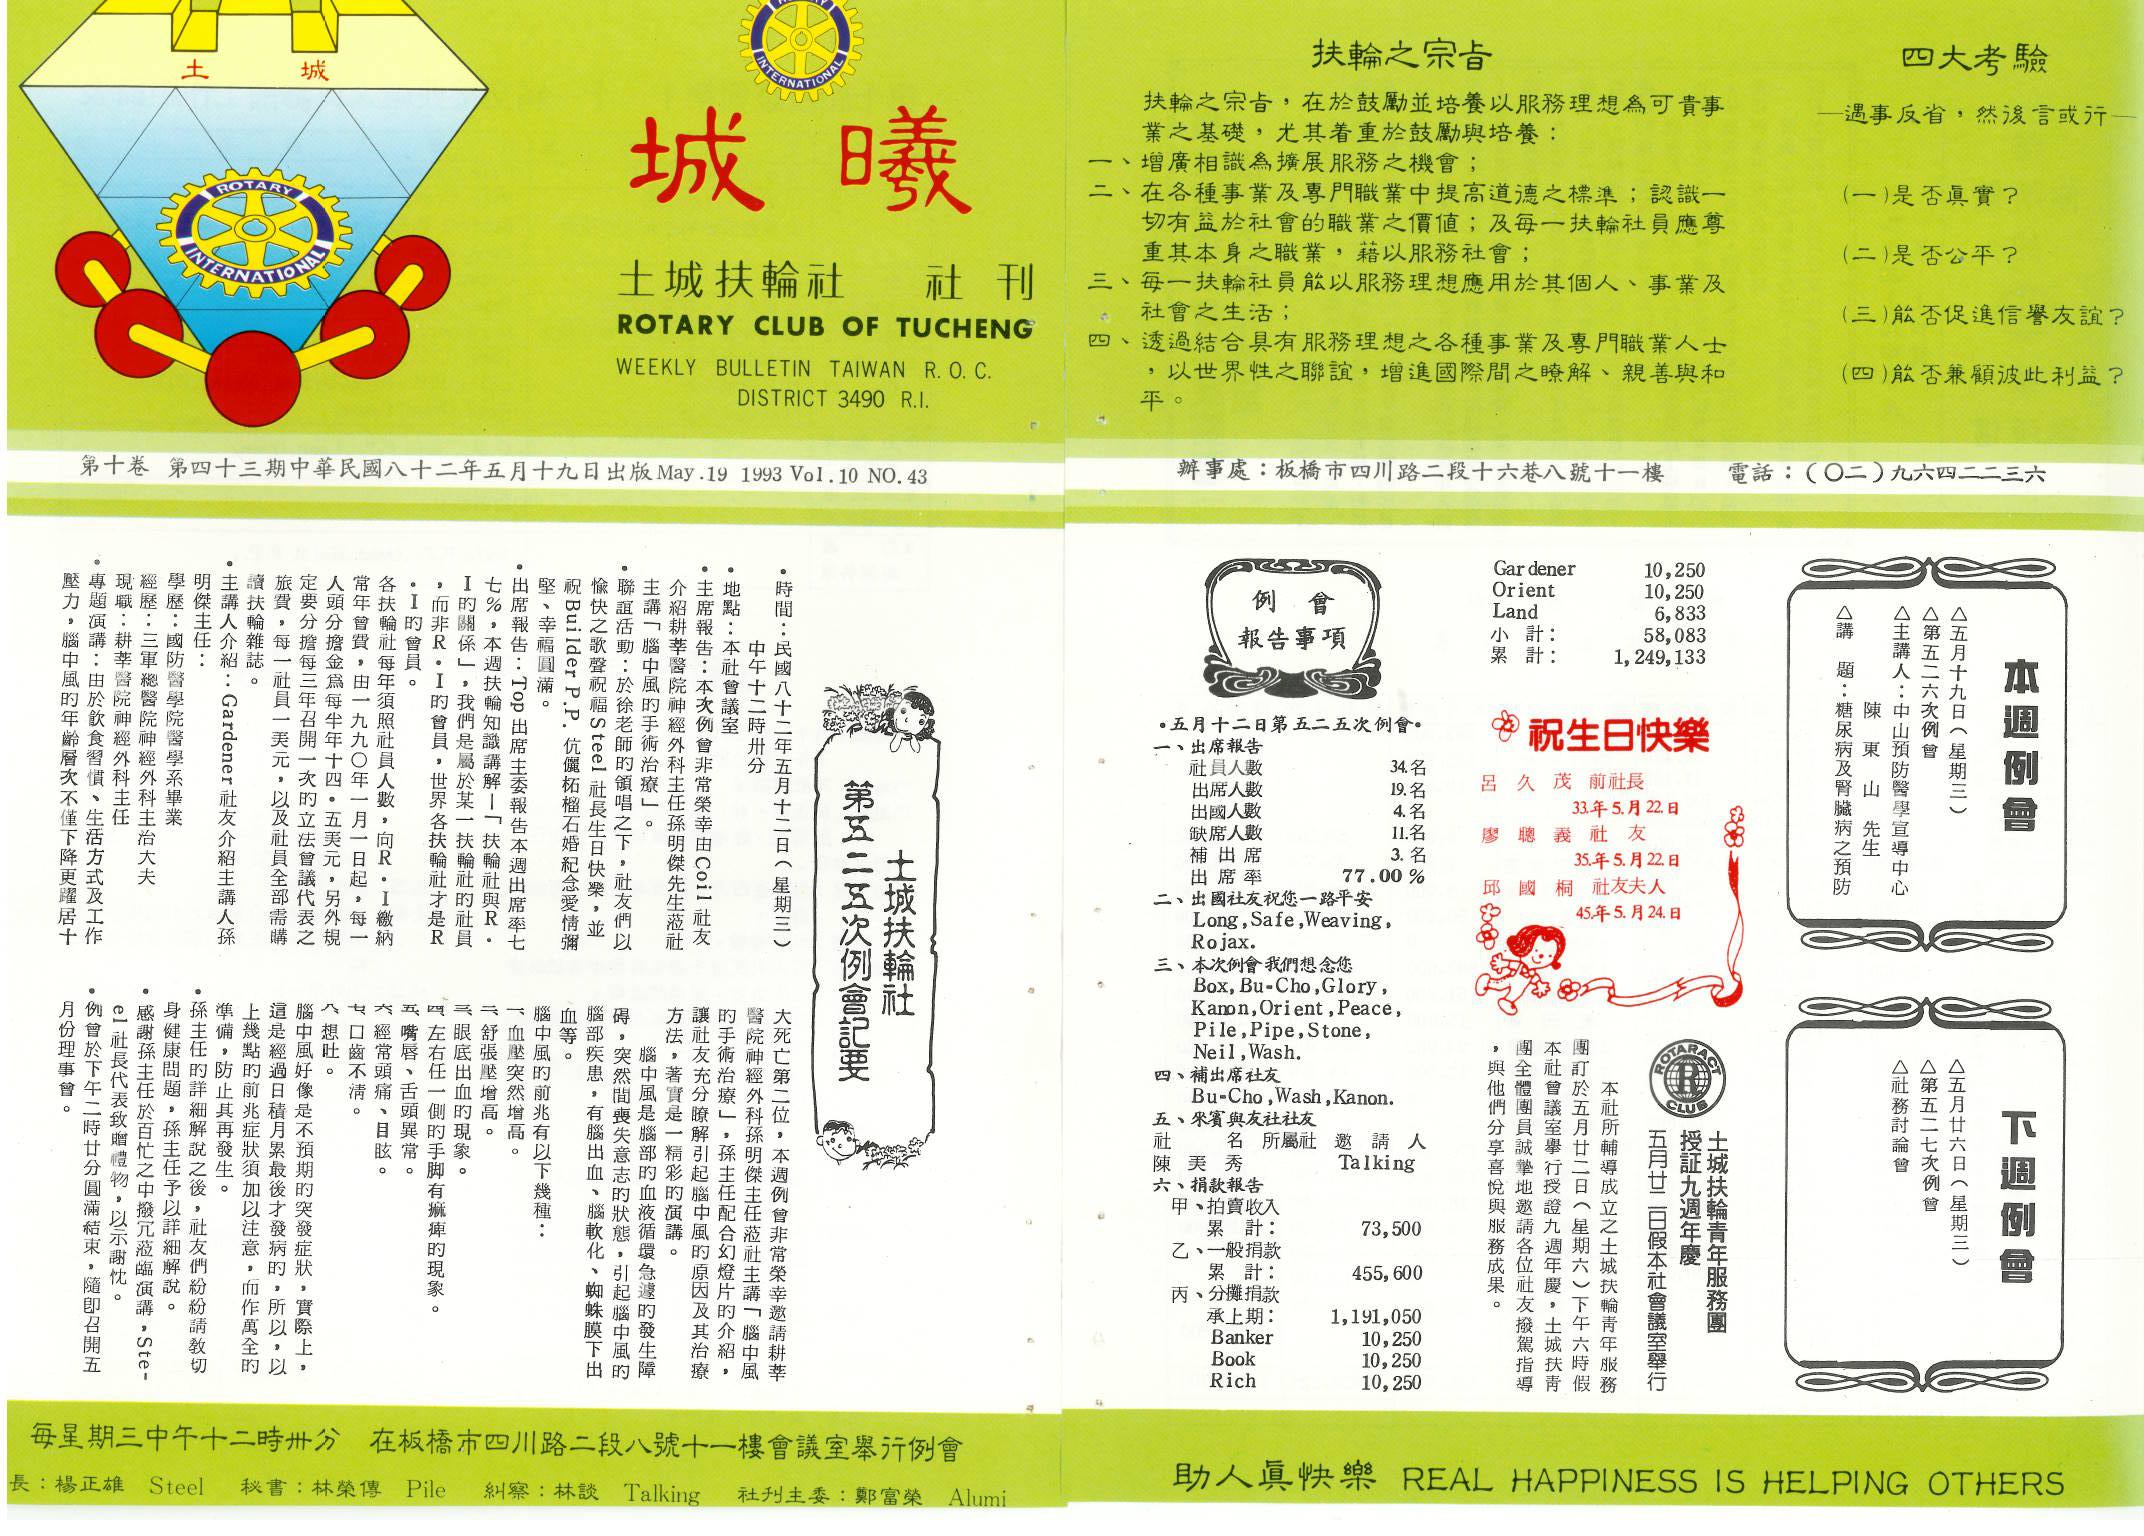 土 城
ROTARY
INTERNATIONAL
ROTARY
INTERNATIONAL
城 曦
土城扶輪社 社刊
ROTARY CLUB OF TUCHENG
WEEKLY BULLETIN TAIWAN R. O. C.
DISTRICT 3490 R.I.
第十卷 第四十三期中華民國八十二年五月十九日出版 May.19 1993 Vol.10 NO.43
扶輪之宗旨
扶輪之宗旨，在於鼓勵並培養以服務理想為可貴事
業之基礎，尤其着重於鼓勵與培養：
一、增廣相識為擴展服務之機會；
二、在各種事業及專門職業中提高道德之標準；認識一
切有益於社會的職業之價值；及每一扶輪社員應尊
重其本身之職業，藉以服務社會；
三、每一扶輪社員能以服務理想應用於其個人、事業及
社會之生活；
四、透過結合具有服務理想之各種事業及專門職業人士
，以世界性之聯誼，增進國際間之瞭解、親善與和
平。
四大考驗
—遇事反省，然後言或行—
(一)是否真實？
(二)是否公平？
(三)能否促進信譽友誼？
(四)能否兼顧彼此利益？
辦事處：板橋市四川路二段十六巷八號十一樓 電話：（〇二）九六四二二三六
本週例會
△五月十九日（星期三）
△第五二六次例會
△主講人：中山預防醫學宣導中心
陳東山 先生
△講 題：糖尿病及腎臟病之預防
下週例會
△五月廿六日（星期三）
△第五二七次例會
△社務討論會
例會
報告事項
•五月十二日第五二五次例會•
一、出席報告
社員人數 34.名
出席人數 19.名
出國人數 4.名
缺席人數 11.名
補出席 3.名
出席率 77.00%
二、出國社友祝您一路平安
Long,Safe,Weaving,
Rojax.
三、本次例會我們想念您
Box,Bu-Cho,Glory,
Kanon,Orient,Peace,
Pile,Pipe,Stone,
Neil,Wash.
四、補出席社友
Bu-Cho,Wash,Kanon.
五、來賓與友社社友
社 名 所屬社 邀請人
陳美秀 Talking
六、捐款報告
甲、拍賣收入
累 計： 73,500
乙、一般捐款
累 計： 455,600
丙、分攤捐款
承上期： 1,191,050
Banker 10,250
Book 10,250
Rich 10,250
Gardener 10,250
Orient 10,250
Land 6,833
小 計： 58,083
累 計： 1,249,133
祝生日快樂
呂久茂 前社長
33.年5.月22.日
廖聰義 社友
35.年5.月22.日
邱國桐 社友夫人
45.年5.月24.日
ROTARACT
R
CLUB
土城扶輪青年服務團
授証九週年慶
五月廿二日假本社會議室舉行
本社所輔導成立之土城扶輪青年服務
團訂於五月廿二日（星期六）下午六時假
本社會議室舉行授證九週年慶，土城扶青
團全體團員誠摯地邀請各位社友撥駕指導
，與他們分享喜悅與服務成果。
土城扶輪社
第五二五次例會記要
•時間：民國八十二年五月十二日（星期三）
中午十二時卅分
•地點：本社會議室
•主席報告：本次例會非常榮幸由Coil 社友
介紹耕莘醫院神經外科主任孫明傑先生蒞社
主講「腦中風的手術治療」。
•聯誼活動：於徐老師的領唱之下，社友們以
愉快之歌聲祝福Steel 社長生日快樂，並
祝Builder P.P. 伉儷柘榴石婚紀念愛情彌
堅、幸福圓滿。
•出席報告：Top 出席主委報告本週出席率七
七%，本週扶輪知識講解—「扶輪社與R・
I 的關係」，我們是屬於某一扶輪社的社員
，而非R・I 的會員，世界各扶輪社才是R
・I 的會員。
各扶輪社每年須照社員人數，向R・I 繳納
常年會費，由一九九〇年一月一日起，每一
人頭分擔金為每半年十四・五美元，另外規
定要分擔每三年召開一次的立法會議代表之
旅費，每一社員一美元，以及社員全部需購
讀扶輪雜誌。
•主講人介紹：Gardener 社友介紹主講人孫
明傑主任：
學歷：國防醫學院醫學系畢業
經歷：三軍總醫院神經外科主治大夫
現職：耕莘醫院神經外科主任
•專題演講：由於飲食習慣、生活方式及工作
壓力，腦中風的年齡層次不僅下降更躍居十
大死亡第二位，本週例會非常榮幸邀請耕莘
醫院神經外科孫明傑主任蒞社主講「腦中風
的手術治療」，孫主任配合幻燈片的介紹，
讓社友充分瞭解引起腦中風的原因及其治療
方法，著實是一精彩的演講。
腦中風是腦部的血液循環急遽的發生障
碍，突然間喪失意志的狀態，引起腦中風的
腦部疾患，有腦出血、腦軟化、蜘蛛膜下出
血等。
腦中風的前兆有以下幾種：
一、血壓突然增高。
二、舒張壓增高。
三、眼底出血的現象。
四、左右任一側的手脚有痲痺的現象。
五、嘴唇、舌頭異常。
六、經常頭痛、目眩。
七、口齒不清。
八、想吐。
腦中風好像是不預期的突發症狀，實際上，
這是經過日積月累最後才發病的，所以，以
上幾點的前兆症狀須加以注意，而作萬全的
準備，防止其再發生。
•孫主任的詳細解說之後，社友們紛紛請教切
身健康問題，孫主任予以詳細解說。
•感謝孫主任於百忙之中撥冗蒞臨演講，Ste-
el 社長代表致贈禮物，以示謝忱。
•例會於下午二時廿分圓滿結束，隨卽召開五
月份理事會。
每星期三中午十二時卅分 在板橋市四川路二段八號十一樓會議室舉行例會
長：楊正雄 Steel 秘書：林榮傳 Pile 糾察：林談 Talking 社刊主委：鄭富榮 Alumi
助人眞快樂 REAL HAPPINESS IS HELPING OTHERS